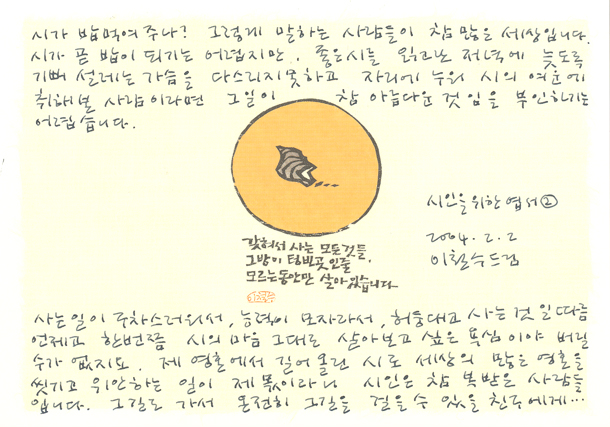 시가 밥먹여 주나? 그렇게 말하는 사람들이 참 많은 세상입니다.
시가 곧 밥이 되기는 어렵지만, 좋은시를 읽고난 저녁에 늦도록
기뻐 설레는 가슴을 다스리지못하고 자리에 누워 시의 여운에
취해본 사람이라면 그일이 참 아름다운 것 임을 부인하기는
어렵습니다.
갖혀서 사는 모든것들,
그방이 텅빈곳인줄
모르는동안만 살아있습니다
시인을위한엽서②
2004. 2. 2
이철수드림
사는일이 주차스러워서, 능력이 모자라서, 허둥대고 사는 것 일따름
언제고 한번쯤 시의 마음 그대로 살아보고 싶은 욕심이야 버릴
수가 없지요. 제 영혼에서 길어올린 시로 세상의 많은 영혼을
씻기고 위안하는 일이 제 몫이라니 시인은 참 복받은 사람들
입니다. 그길로 가서 온전히 그길을 걸을 수 있을 친구에게…